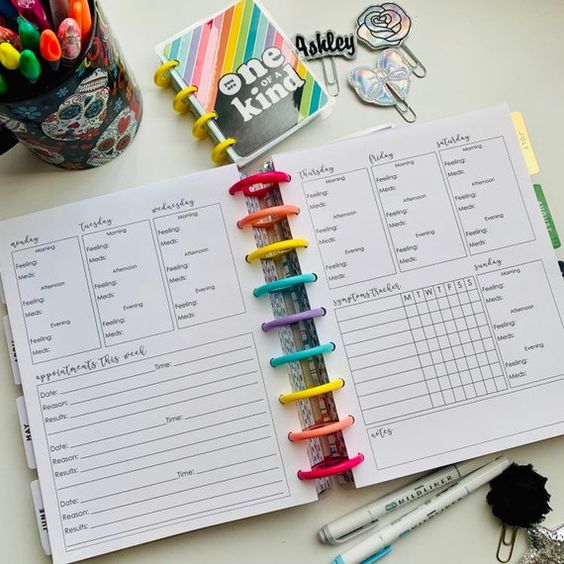 Ashley
YOU ARE
one
OF A
kind
monday
Morning
Feeling:
Meds:
Afternoon
Feeling:
Meds:
Evening
Feeling:
Meds:
tuesday
Morning
Feeling:
Meds:
Afternoon
Feeling:
Meds:
Evening
Feeling:
Meds:
wednesday
Morning
Feeling:
Meds:
Afternoon
Feeling:
Meds:
Evening
Feeling:
Meds:
appointments this week
Date: Time:
Reason:
Results:
Date: Time:
Reason:
Results:
Date: Time:
Reason:
Results:
thursday
Morning
Feeling:
Meds:
Afternoon
Feeling:
Meds:
Evening
Feeling:
Meds:
friday
Morning
Feeling:
Meds:
Afternoon
Feeling:
Meds:
Evening
Feeling:
Meds:
saturday
Morning
Feeling:
Meds:
Afternoon
Feeling:
Meds:
Evening
Feeling:
Meds:
symptoms tracker M T W T F S S
sunday
Morning
Feeling:
Meds:
Afternoon
Feeling:
Meds:
Evening
Feeling:
Meds:
notes
JULY
AUGUST
MAY
JUNE
MILDLINER
MILDLINER